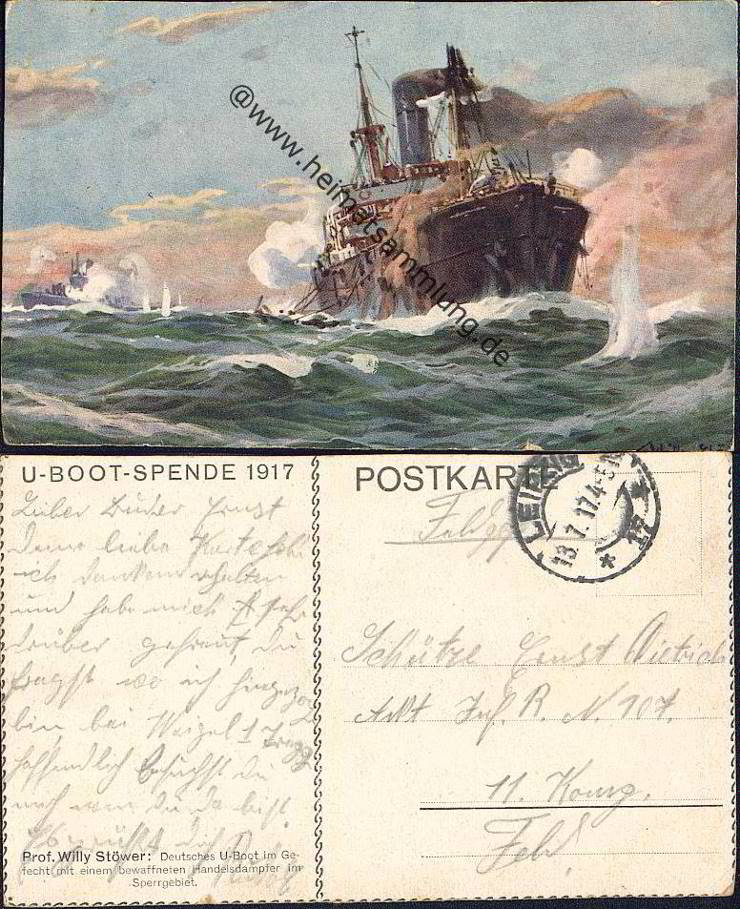 @www.heimatsammlung.de
U-BOOT-SPENDE 1917
Lieber Bruder Ernst
Deine liebe Karte
ich dankend erhalten
und habe mich sehr
drüber gefreut, Du
fragst wo ich hingezogen
bin, bei Weigel 1
hoffendlich besuchst du
wen du da bist.
grüßt dich
Rudolf
Prof. Willy Stöwer: Deutsches U-Boot im Ge-
fecht mit einem bewaffneten Handelsdampfer im
Sperrgebiet.
POSTKARTE
LEIPZIG
13.7.17.4-5N
* 17 *
Feldpost
Schütze Ernst Dietrich
Inf. R. N. 107.
11. Komp.
Feld